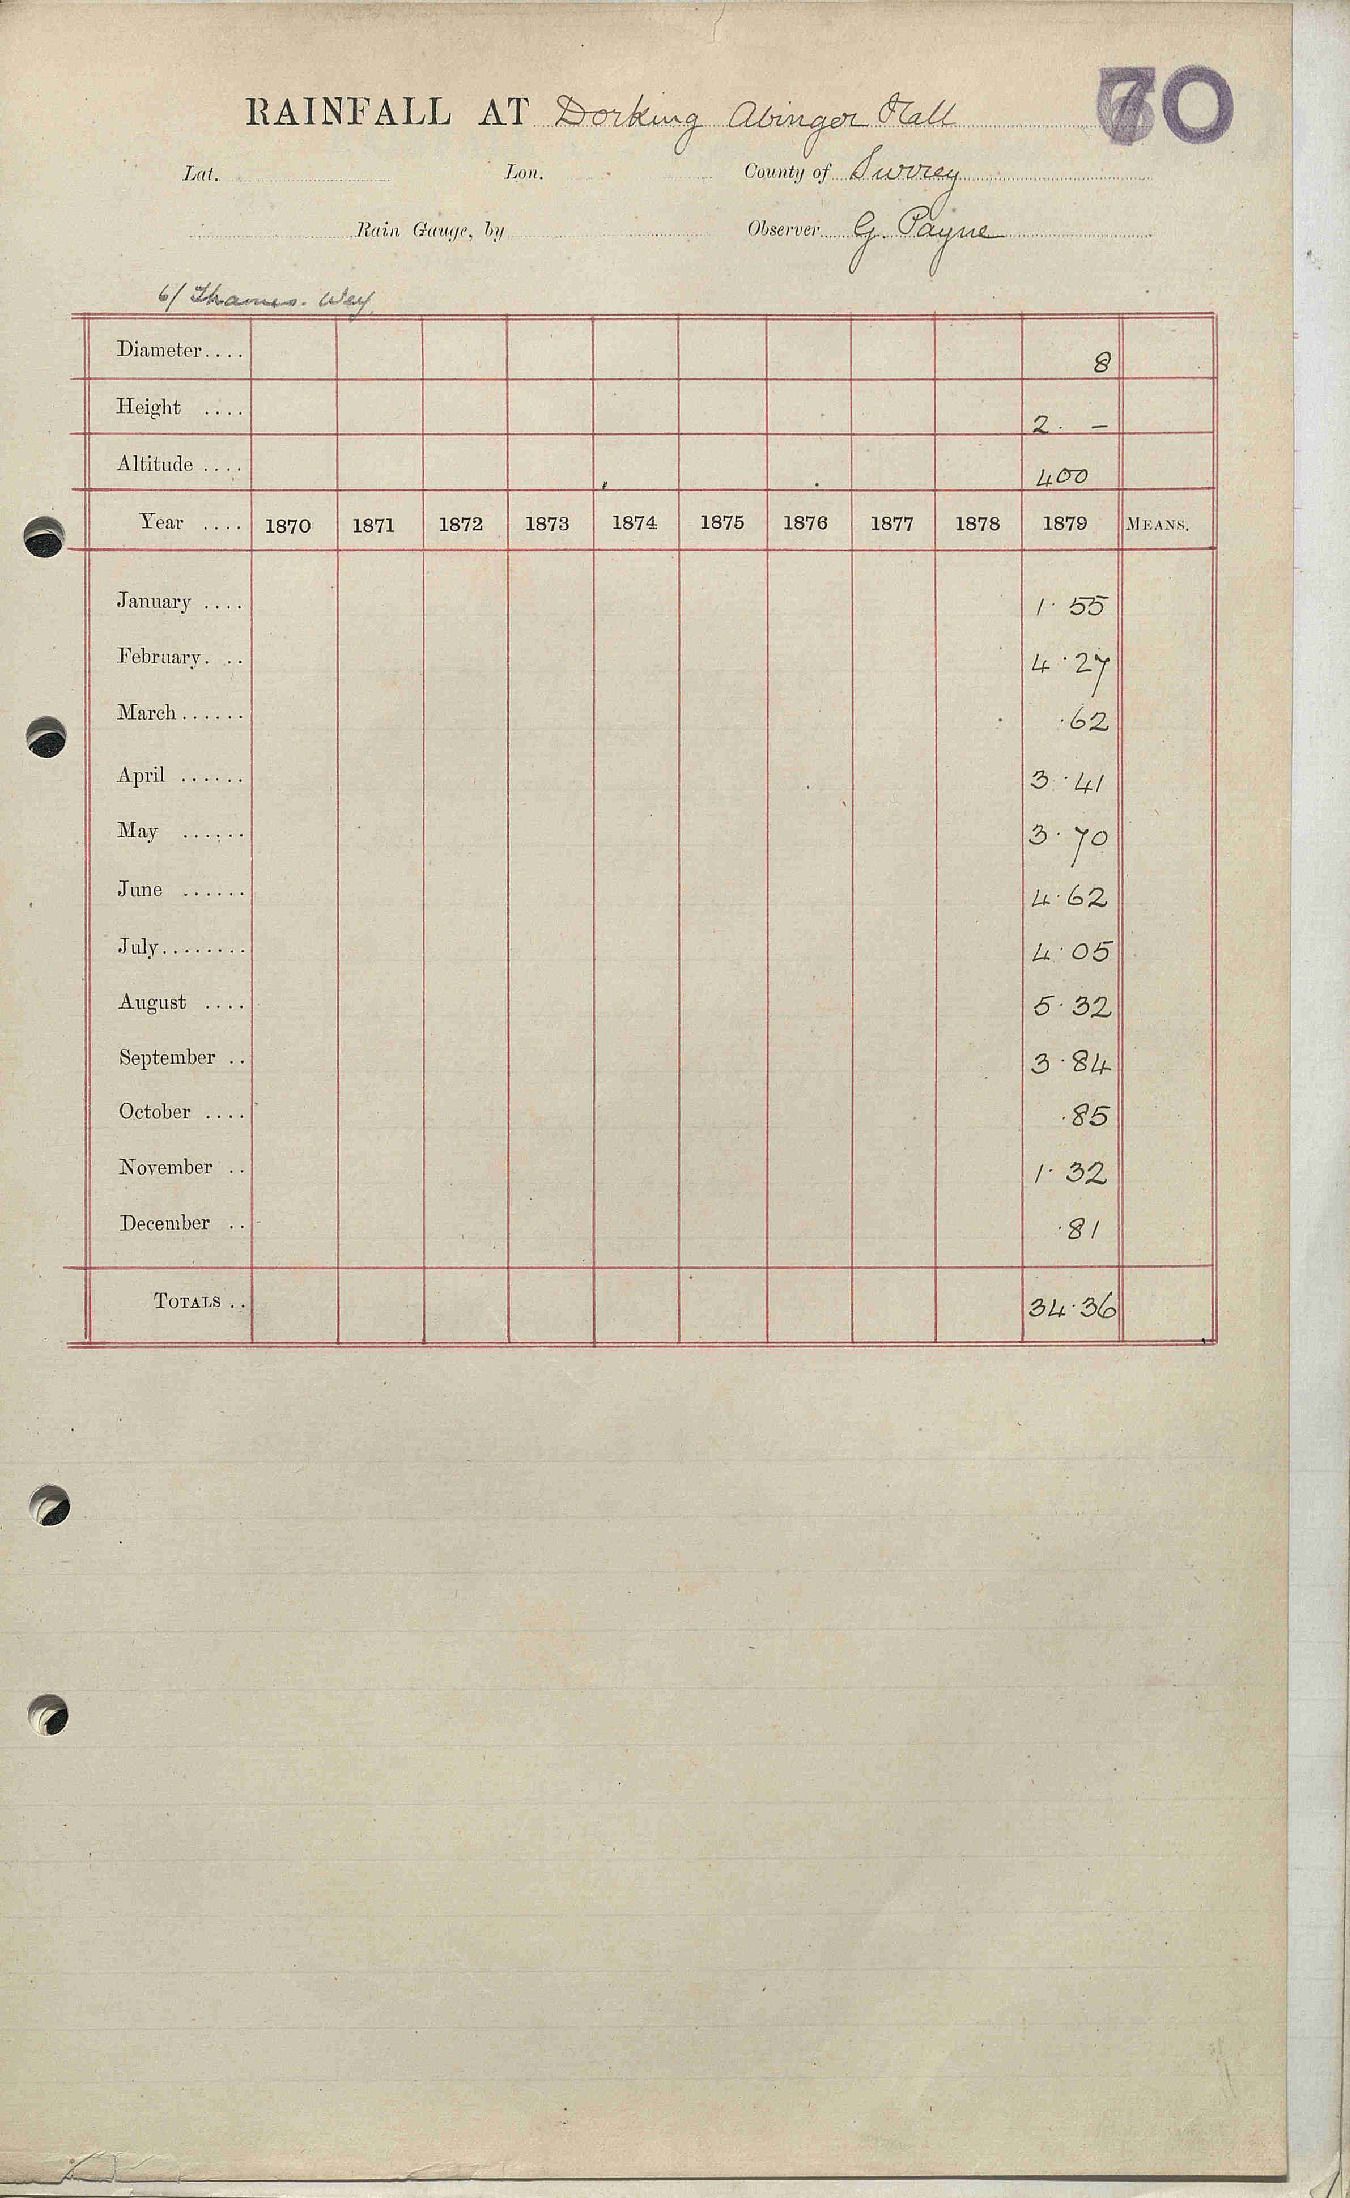 70
RAINFALL AT Dorking Abinger Hall
Lat. Lon. County of Surrey
Rain Gauge, by Observer G. Payne
6/ Thames. Wey
Diameter.... 8
Height .... 2. –
Altitude .... 400
Year .... 1870 1871 1872 1873 1874 1875 1876 1877 1878 1879 MEANS.
January .... 1·55
February. .. 4·27
March...... ·62
April ...... 3·41
May ...... 3·70
June ...... 4·62
July........ 4·05
August .... 5·32
September .. 3·84
October .... ·85
November .. 1·32
December .. ·81
TOTALS .. 34·36